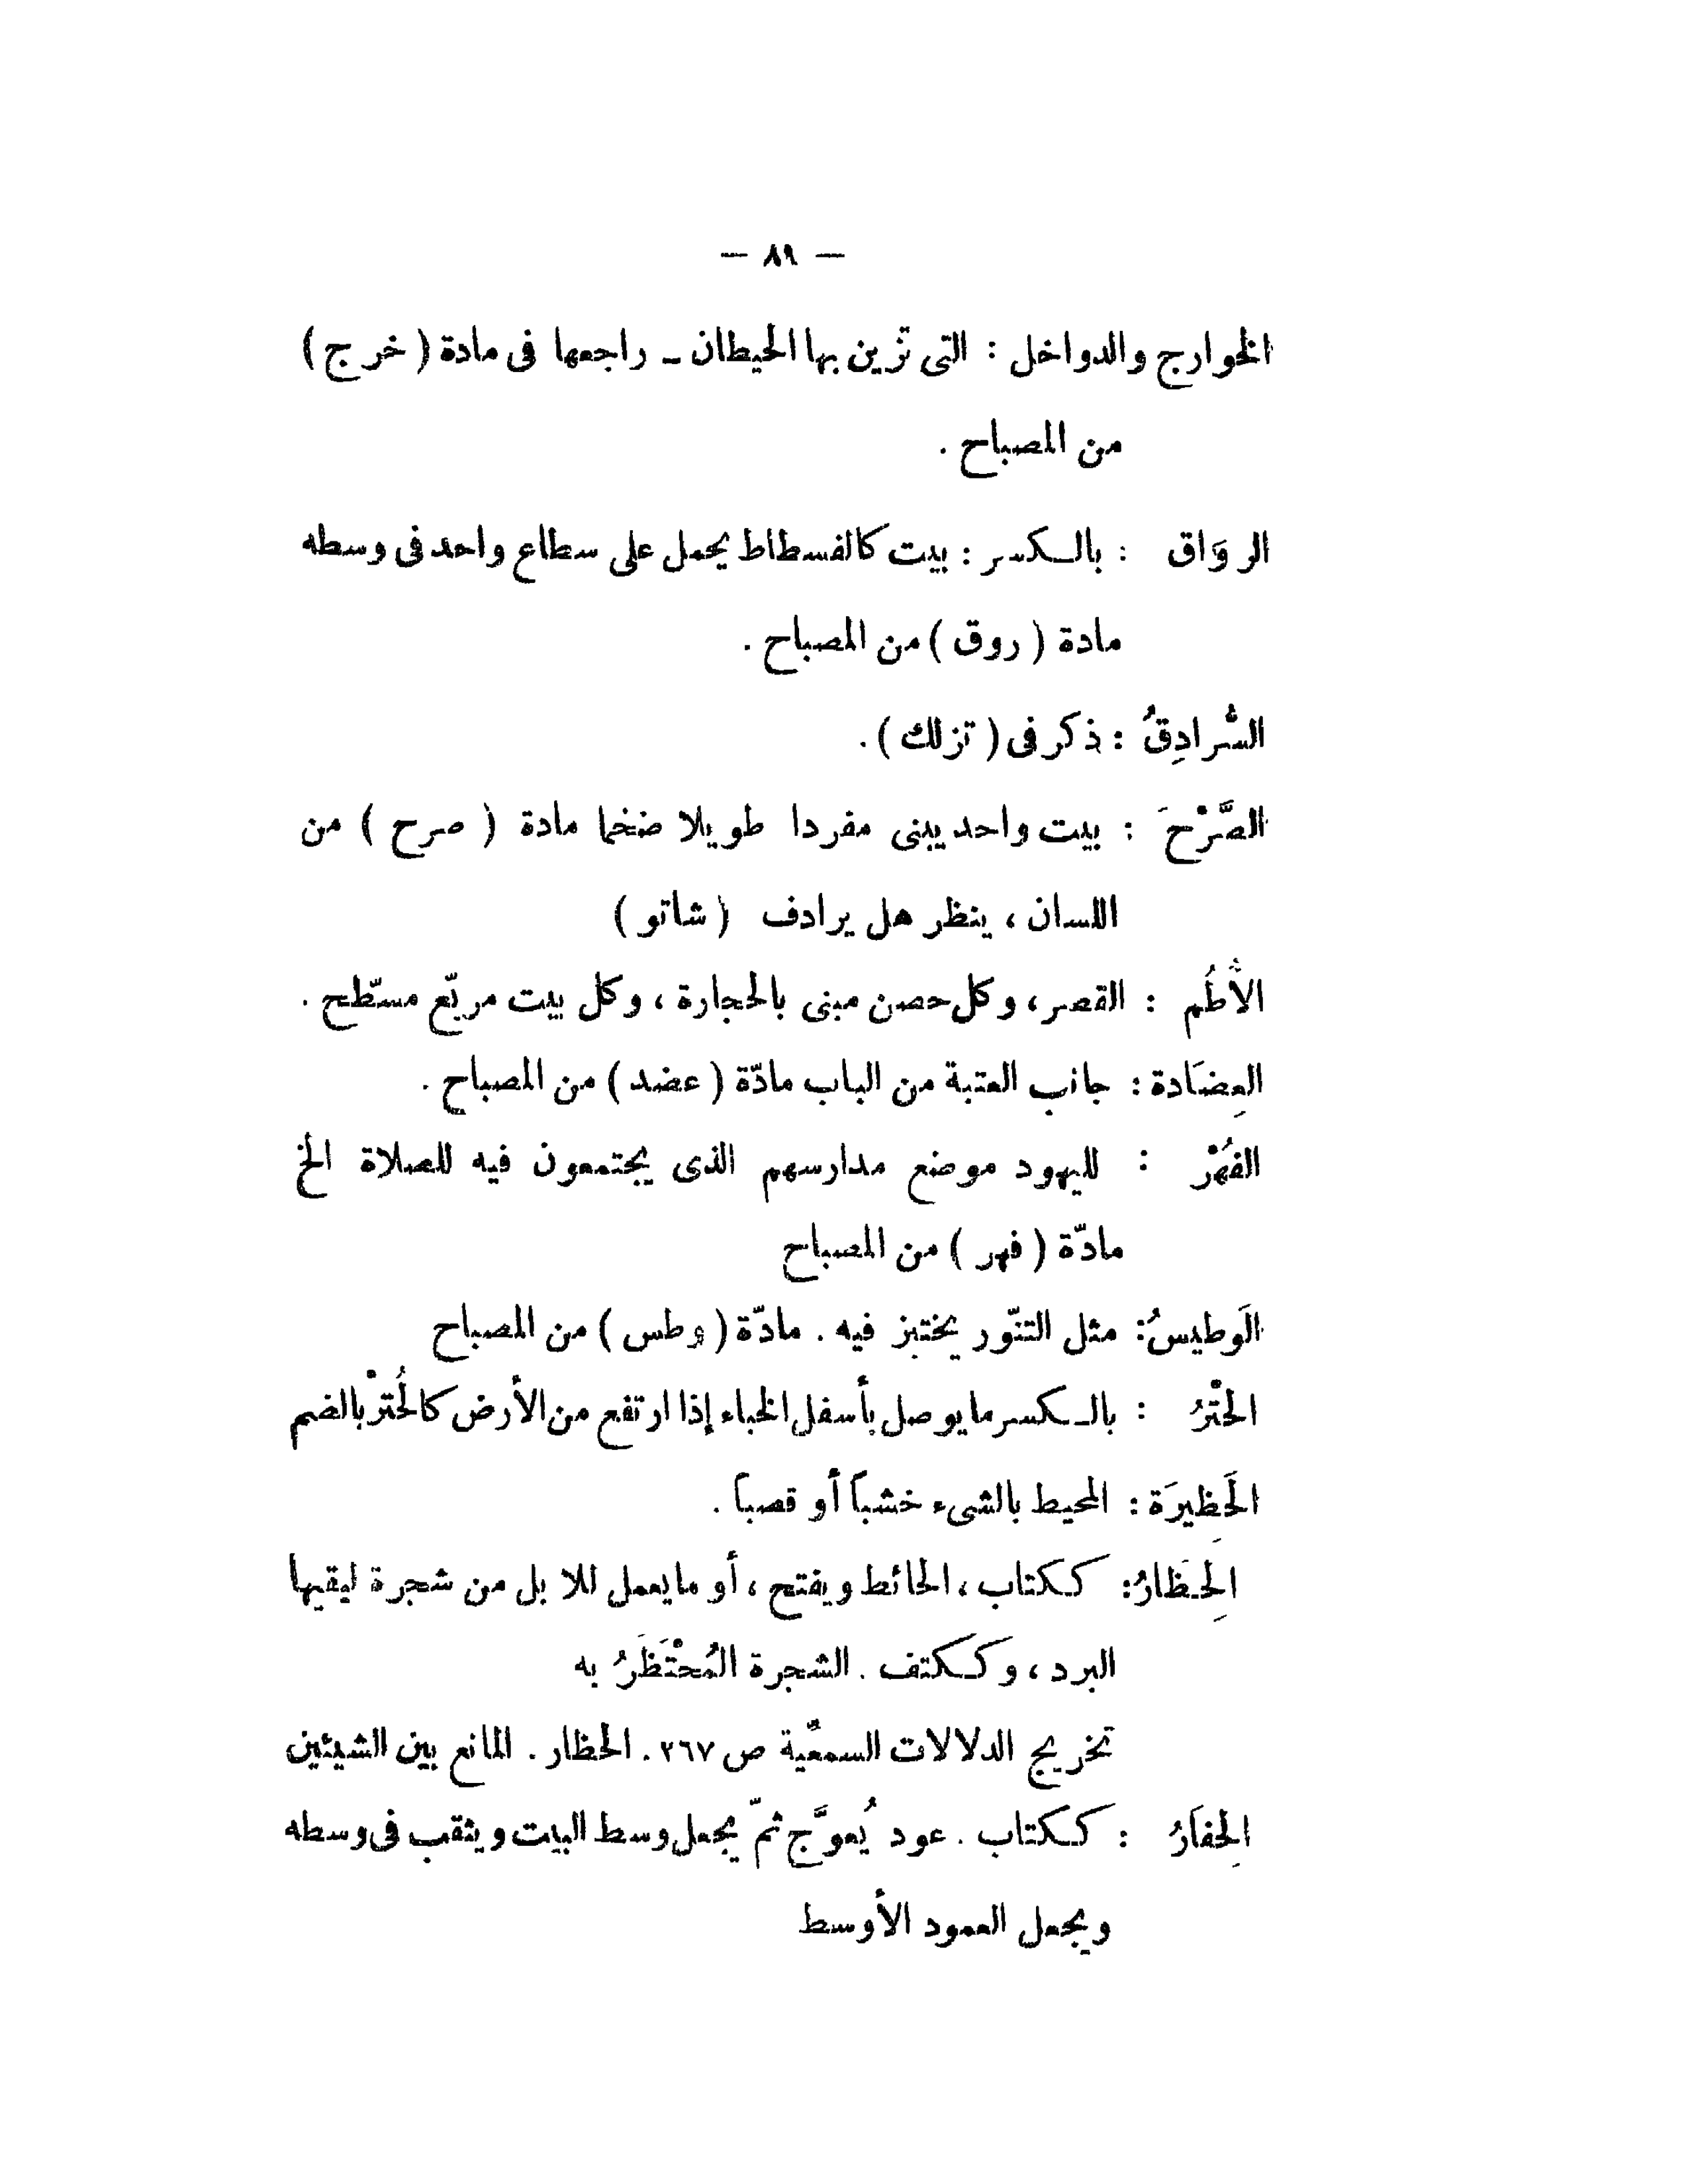 — ٨٩ —
الخوارج والدواخل : التى تُزين بها الحيطان – راجعها فى مادة ( خرج )
من المصباح .
الروَاق : بالكسر : بيت كالفسطاط يحمل على سطاع واحد فى وسطه
مادة ( روق ) من المصباح .
السُّرادِقُ : ذكر فى ( تزلك ) .
الصَّرْحَ : بيت واحد يبنى مفردا طويلا ضخما مادة ( صرح ) من
اللسان ، ينظر هل يرادف ( شاتو )
الأُطُم : القصر ، وكل حصن مبنى بالحجارة ، وكل بيت مربّع مسطّح .
العِضَادة : جانب العتبة من الباب مادّة ( عضد ) من المصباح .
الفُهْر : لليهود موضع مدارسهم الذى يجتمعون فيه للصلاة الخ
مادّة ( فهر ) من المصباح
الوَطيسُ : مثل التنّور يختبز فيه . مادّة ( وطس ) من المصباح
الحْترُ : بالكسر ما يوصل بأسفل الخباء إذا ارتفع من الأرض كالحُترْ بالضم
الحَظِيرَة : المحيط بالشىء خشباً أو قصباً .
الحِظَارُ : ككتاب ، الحائط ويفتح ، أو ما يعمل للابل من شجرة ليقيها
البرد ، وككتف . الشجرة المُحْتَظَرُ به
تخريج الدلالات السمعّية ص ٢٦٧ . الحظار . المانع بين الشيئين
الحِفَارُ : ككتاب . عود يُعوَّج ثمّ يجعل وسط البيت ويثقب فى وسطه
ويجعل العمود الأوسط